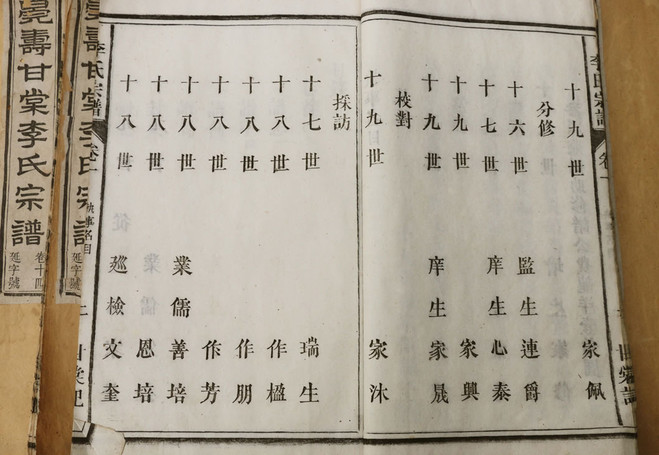 李氏宗譜 卷一
十九世 家佩
分修
十六世 監生連爵
十七世 庠生心泰
十九世 家興
十九世 庠生家晟
校對
十九世 家沐
採訪
十七世 瑞生
十八世 作楹
十八世 作朋
十八世 作芳
十八世 業儒善培
十八世 恩培
十八世 廵檢文奎
李氏宗譜 卷一 執事名目
壽甘棠李氏宗譜 卷十四 延字號